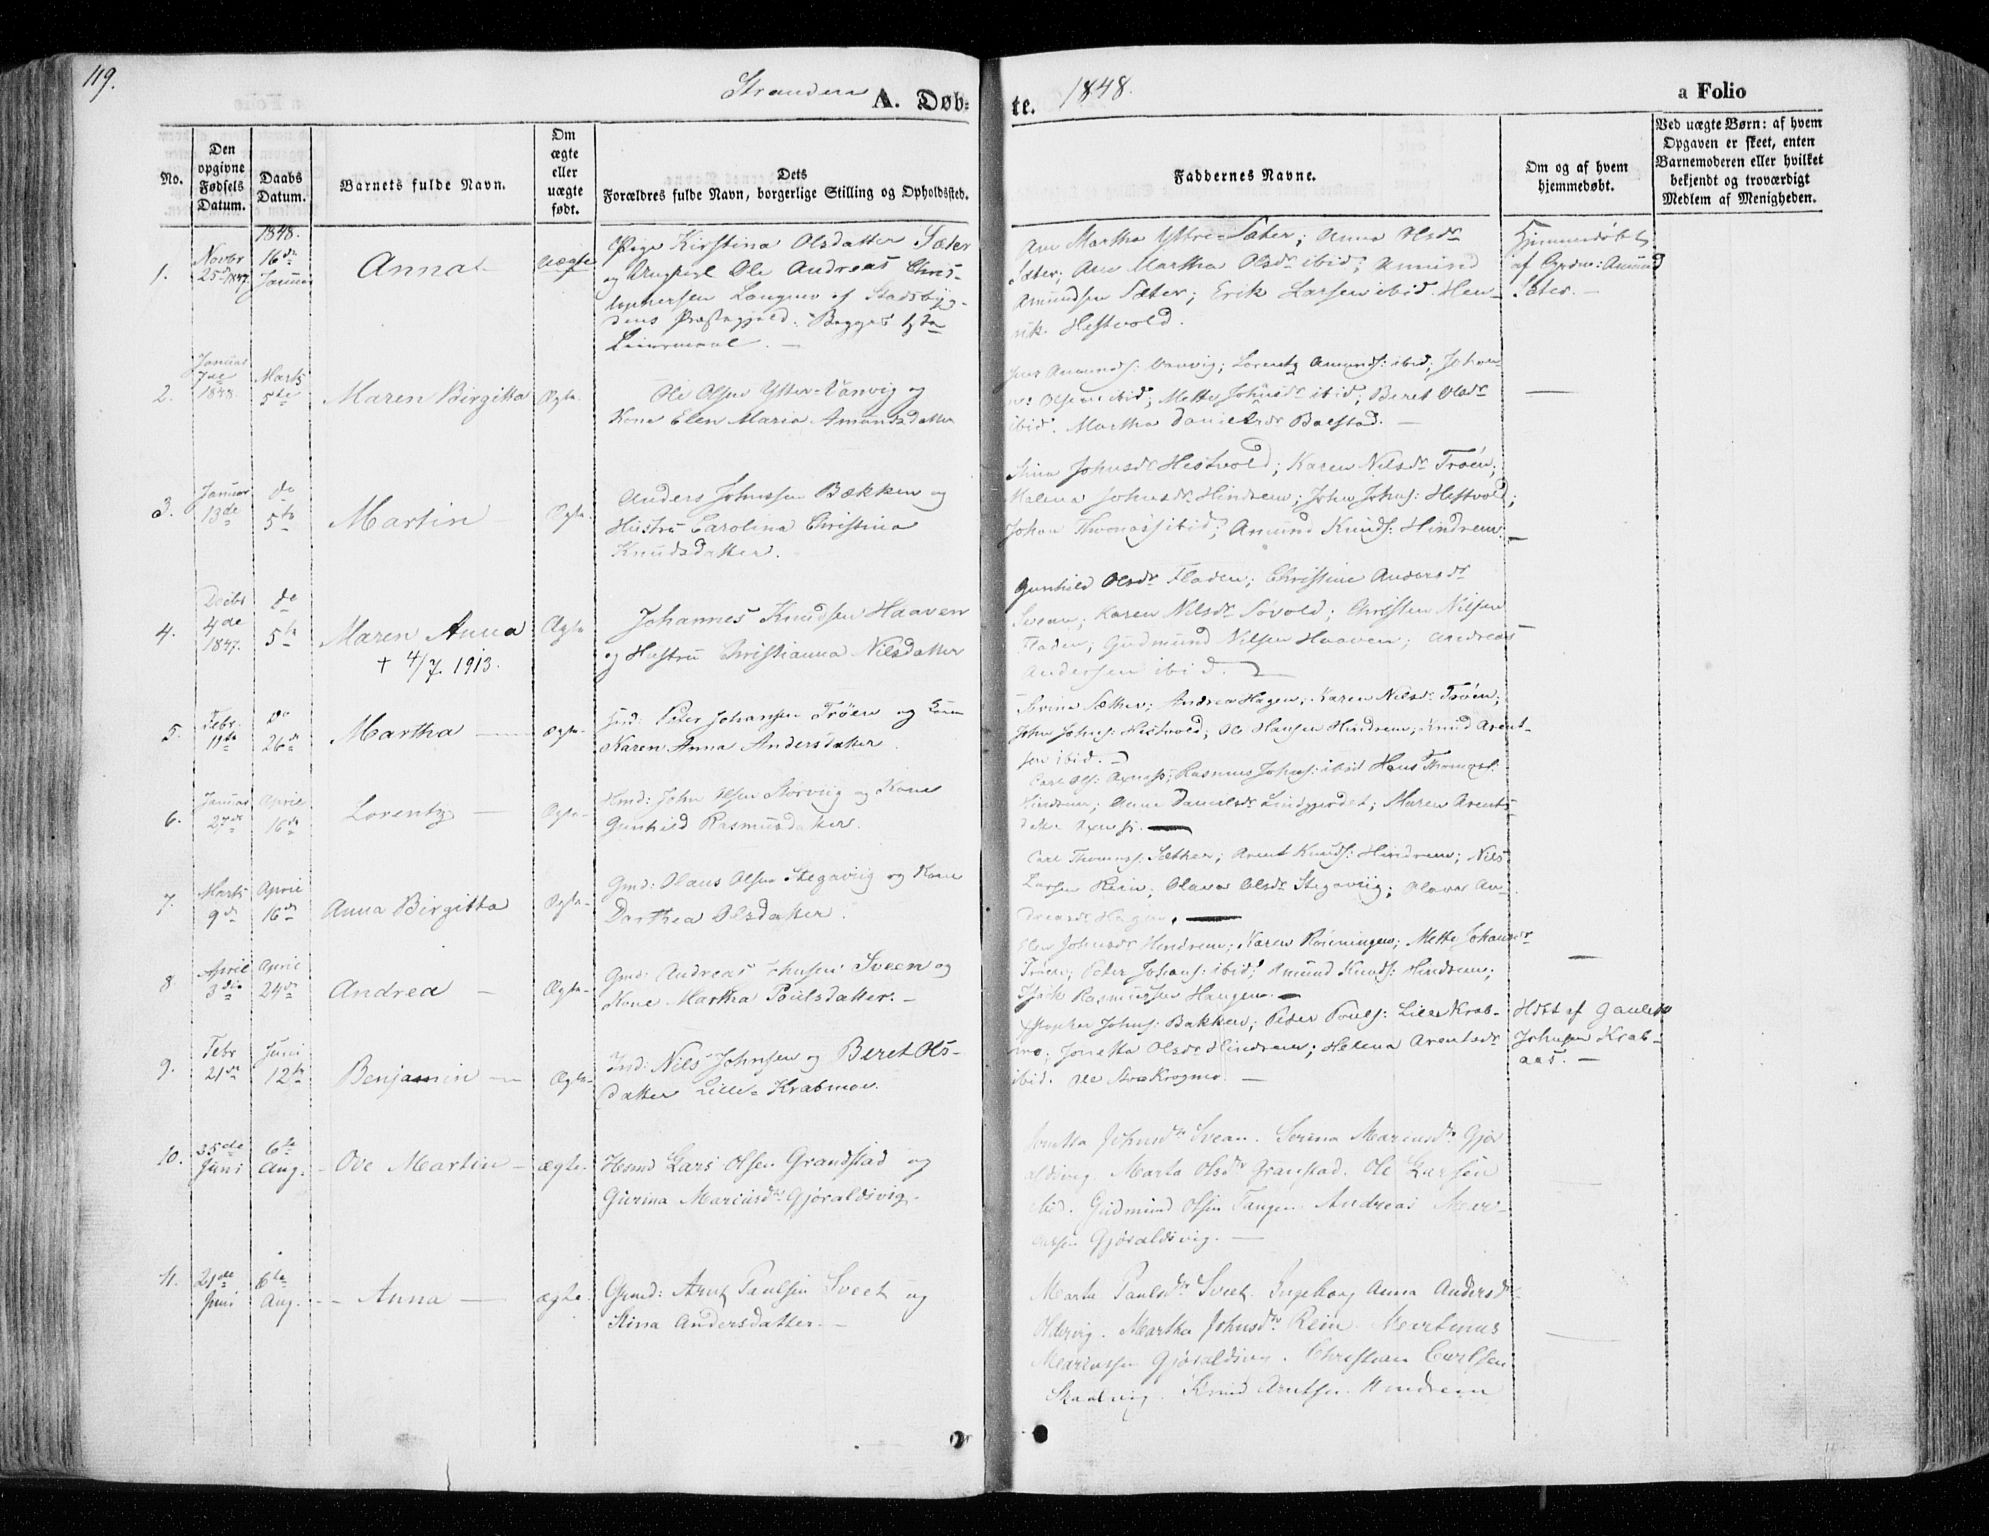 119.
Stranden A. Døb-
te. 1848.
a Folio
No.
Den opgivne Fødsels Datum.
Daabs Datum.
Barnets fulde Navn.
Om ægte eller uægte født.
Dets
Forældres fulde Navn, borgerlige Stilling og Opholdssted.
Faddernes Navne.
Om og af hvem hjemmedøbt.
Ved uægte Børn: af hvem
Opgaven er skeet, enten
Barnemoderen eller hvilket
bekjendt og troværdigt
Medlem af Menigheden.
1848.
1. Novbr 25d 1847. 16de Januar Anna Uægte
Pige Kirstina Olsdatter Sæter
og Ungkarl Ole Andreas Chris-
tophersen Langmo af Stadsbyg-
dens Præstegjeld. Begges 1ste
Leiermaal.
Ane Martha Yttre Sæter; Anna Olsdr
Sæter; Ane Martha Olsdr ibid; Amund
Amundsen Sæter; Erik Larsen ibid. Hen-
rik Hestvold.
Hjemmedøbt
af Gmd: Amund
Sæter.
2. Januar 7de 1848. Marts 5te Maren Birgitta Ægte.
Ole Olsen Ytter-Vanvig og
Kone Elen Maria Amundsdatter
Jens Amunds: Vanvig; Lorentz Amunds: ibid; Johan-
nes Olsen ibid; Mette Johnsdr ibid; Beret Olsdr
ibid. Martha Danielsdr Baestad.
3. Januar 13de do 5te Martin Ægte.
Anders Johnssen Bækken og
Hustru Carolina Christina
Knudsdatter.
Stina Johnsdr Hestvold; Karen Nilsdr Trøen;
Malena Johnsdr Hindrem; John Johns: Hestvold;
Johan ibid; Amund Knuds: Hindrem.
4. Decbr 4de 1847. do 5te Maren Anna Ægte
† 4/7 1913.
Johannes Knudsen Haaven
og Hustru Christianna Nilsdatter
Gunhild Olsdr Fladen; Christine Andersdr
Svean; Karen Nilsdr Søvold; Christen Nilsen
Fladen; Gudmund Nilsen Haaven; Andreas
Andersen ibid.
5. Febr. 11te do 26de Martha Ægte
Gmd: Peter Johansen Trøen og Kone
Karen Anna Andersdatter.
Sæther; Andrea Hagen; Karen Nilsdr Trøen;
John Johns: Hestvold; Ole Hansen Hindrem; Knud Arent-
sen ibid.
6. Januar 27de April 16de Lorentz Ægte
Hmd: John Olsen Storvig og Kone
Gunhild Rasmusdatter.
Carl Ols: Rasmus Johns: ibid Hans
Hindrem; Anne Danielsdr Maren Arents-
datter
7. Marts 9de April 16de Anna Birgitta Ægte
Gmd: Olaus Olsen Stegavig og Kone
Dorthea Olsdatter.
Carl Thomass: Sæther; Arent Knuds: Hindrem; Nils
Larsen Rein; Olava Olsdr Stegaviig; Olava An-
dreasdr Hagen.
8 April 3die April 24de Andrea Ægte
Gmd: Andreas Sveen og
Kone Martha Poulsdatter.
Johnsdr Hindrem; Karen Mette Johansdr
Trøen; Peter Johans: ibid; Amund Knuds: Hindrem;
Rasmussen Haugen.
9. Febr 21de Juni 12te Benjamin Ægte
Ind: Nils Johnsen og Beret Ols-
datter Lille Krabmoe.
Johns: Bakken; Peder Pouls: Lille Krab-
moe; Jonetta Olsdr Hindrem; Helena Arentsdr
ibid. Ole
Hdbt af
Johnsen Krab-
aas.
10. 25de Juni 6te Aug. Ove Martin ægte
Hsmd Lars Olsen Grandstad og
Gurina Mariusdr Gjøraldsvig.
Jonetta Johnsdtr Svean. Serina Mariusdtr Gjør
aldsvig. Marta Olsdtr Granstad. Ole Larsen
ibid. Gudmund Olsen Tangen Andreas Mari-
ussen Gjøraldsvig.
11. 21de Juni 6te Aug. Anna ægte
Grmd: Arnt Paulsen Sveet og
Stina Andersdatter.
Marta Paulsdtr Sveet. Ingeborg Anna Andersdtr
Oldervig. Martha Johnsdtr Rein. Martinus
Mariussen Gjøraldsvig. Christian Carlsen
Skaalvig. Knud Arntsen Hindrem